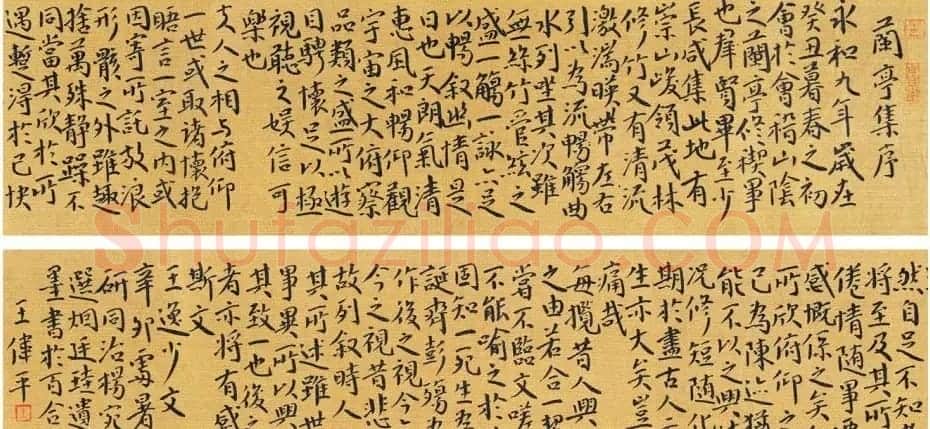 蘭亭集序
永和九年歲在
癸丑暮春之初
會於會稽山陰
之蘭亭修禊事
也群賢畢至少
長咸集此地有
崇山峻領茂林
修竹又有清流
激湍暎帶左右
引以為流觴曲
水列坐其次雖
無絲竹管弦之
盛一觴一詠亦足
以暢敘幽情是
日也天朗氣清
惠風和暢仰觀
宇宙之大俯察
品類之盛所以遊
目騁懷足以極
視聽之娛信可
樂也
夫人之相與俯仰
一世或取諸懷抱
晤言一室之內或
因寄所託放浪
形骸之外雖趣
捨萬殊靜躁不
同當其欣於所
遇暫得於己快
然自足不知
將至及其所
倦情隨事遷
感慨係之矣
所欣俯仰之
已為陳迹猶
能不以之興
況修短隨化
期於盡古人
生亦大矣豈
痛哉
每攬昔人興
之由若合一契
嘗不臨文嗟
不能喻之於
固知一死生為
誕齊彭殤為
作後之視今
今之視昔悲
故列敘時人
其所述雖世
事異所以興
其致一也後之
者亦將有感
斯文
王逸少文
辛卯處暑
研同治楊宛
選烟廷珪遺
墨書於百合
王偉平
Shufaziliao.COM